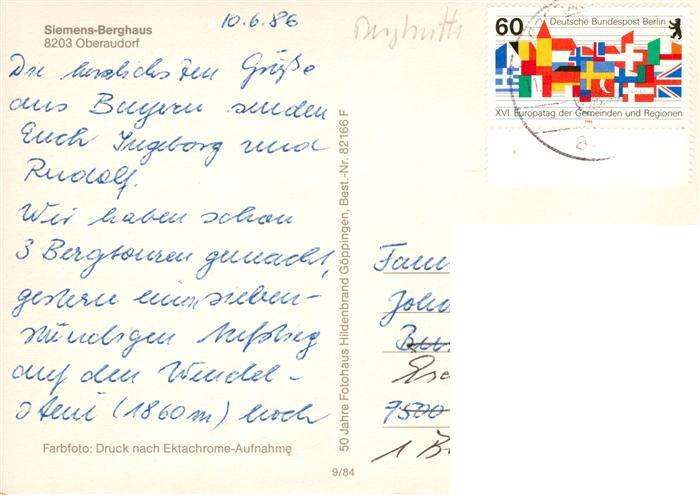 Siemens-Berghaus
8203 Oberaudorf
10.6.86
60 Deutsche Bundespost Berlin
XVI. Europatag der Gemeinden und Regionen
Die herzlichsten Grüße
aus Bayern senden
Euch Ingeborg und
Rudolf.
Wir haben schon
3 Bergtouren gemacht,
gestern einen sieben-
stündigen Aufstieg
auf den Wendel-
stein (1860m) hoch
50 Jahre Fotohaus Hildenbrand Göppingen, Best.-Nr. 82166 F
Fam
Joh
7500
1 B
Farbfoto: Druck nach Ektachrome-Aufnahme
9/84